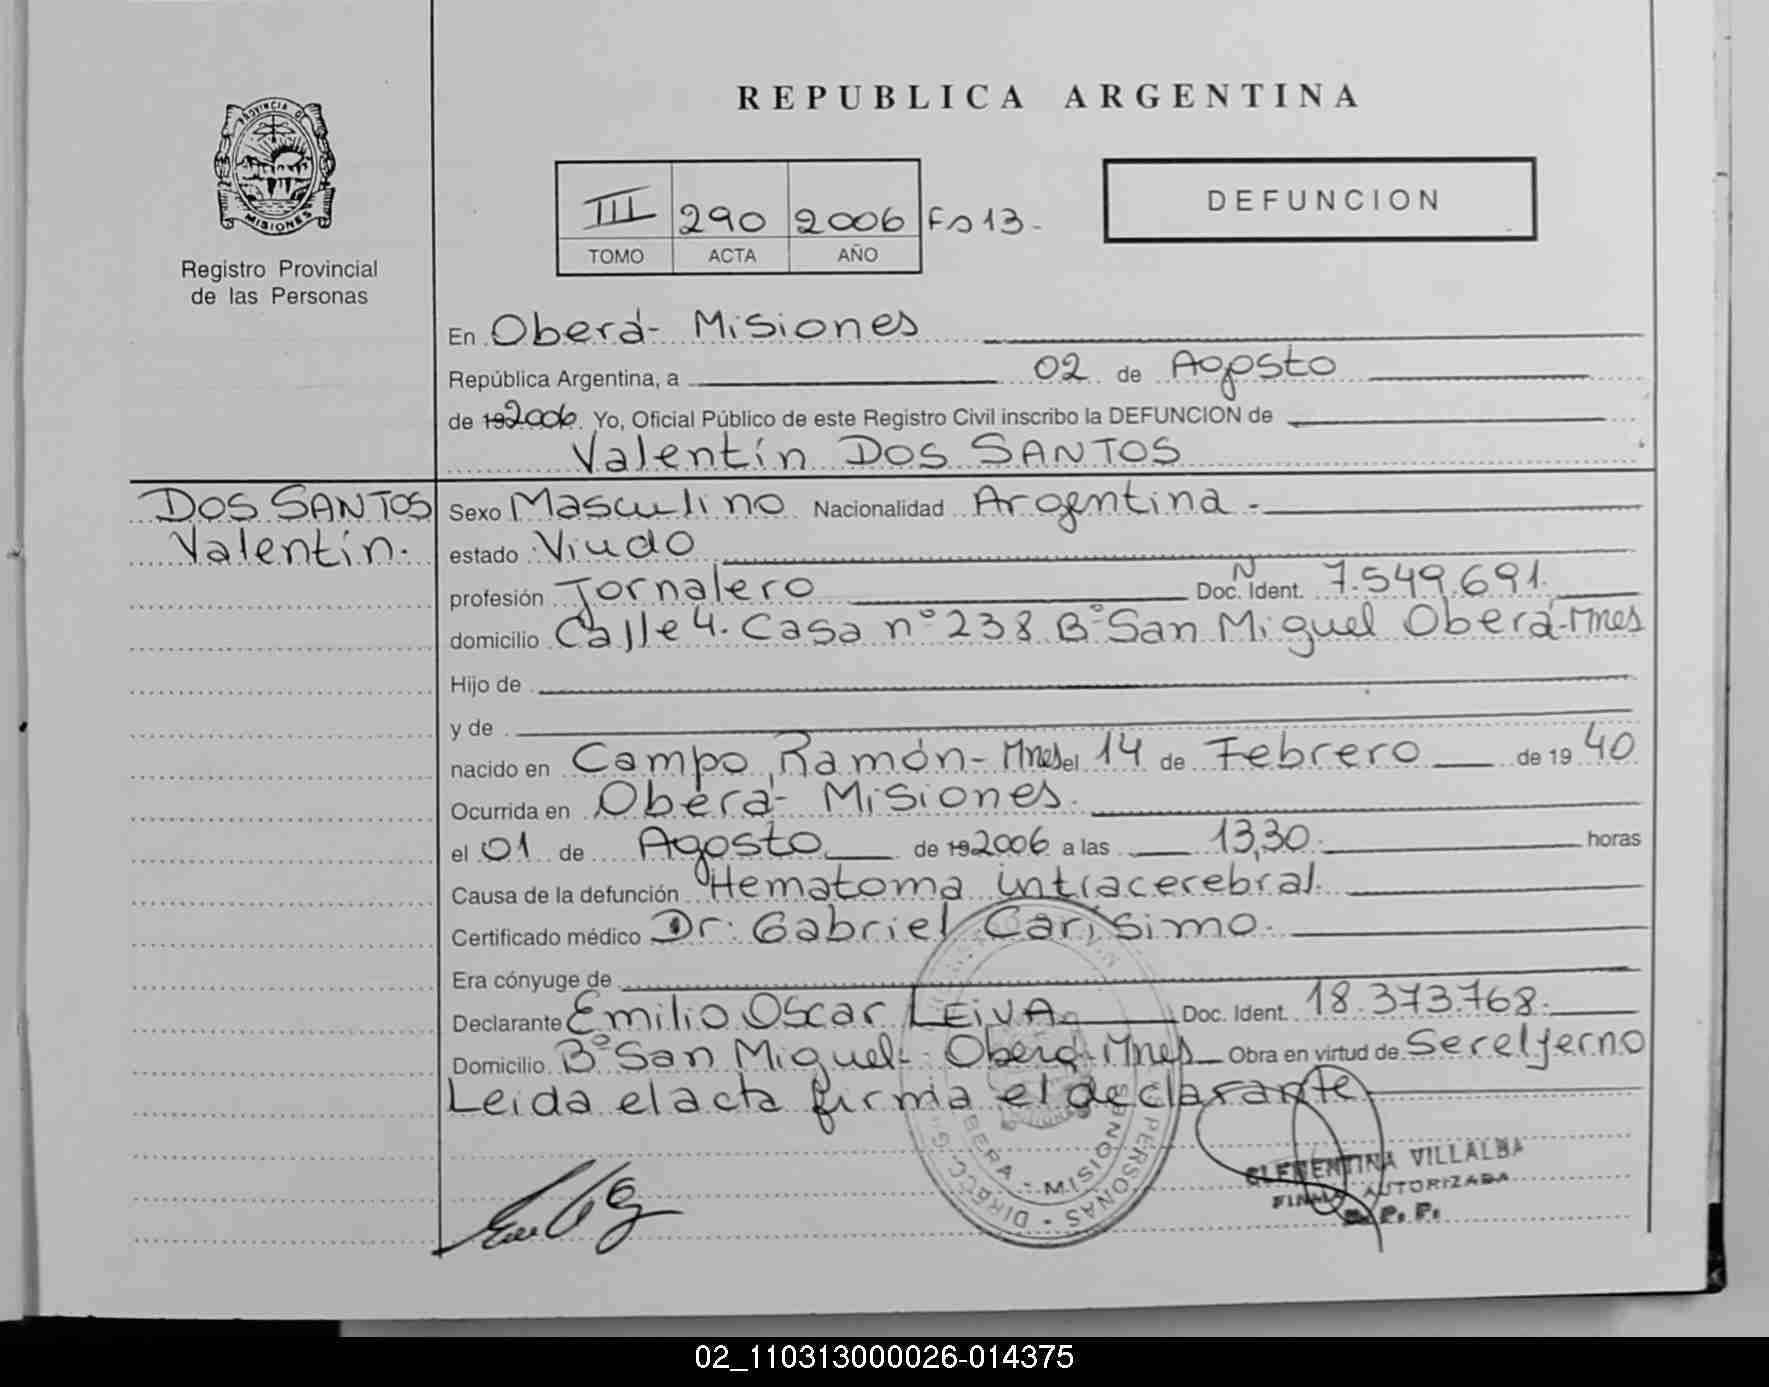 REPUBLICA ARGENTINA
PROVINCIA DE
MISIONES
Registro Provincial
de las Personas
III 290 2006 Fs 13.-
TOMO ACTA AÑO
DEFUNCION
En Oberá- Misiones
República Argentina, a 02 de Agosto
de 192006. Yo, Oficial Público de este Registro Civil inscribo la DEFUNCION de
Valentín DOS SANTOS
DOS SANTOS
Valentín.
Sexo Masculino Nacionalidad Argentina.-
estado Viudo
profesión Jornalero Doc. N Ident. 7.549.691.
domicilio Calle 4. Casa n° 238 B° San Miguel Oberá-Mnes
Hijo de
y de
nacido en Campo Ramón- Mnes el 14 de Febrero de 19 40
Ocurrida en Oberá- Misiones.
el 01 de Agosto de 192006 a las 13,30 horas
Causa de la defunción Hematoma intracerebral.
Certificado médico Dr. Gabriel Carísimo.
Era cónyuge de
Declarante Emilio Oscar LEIVA Doc. Ident. 18.373.768.
Domicilio B° San Miguel- Oberá-Mnes Obra en virtud de Ser el yerno
Leida el acta firma el declarante
OBERA - MISIONES
PERSONAS - DIRECC
CLEMENTINA VILLALBA
FIRMA AUTORIZADA
R. P. P.
02_110313000026-014375